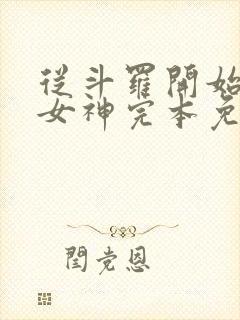 從斗羅開始
女神完本免
閆党恩